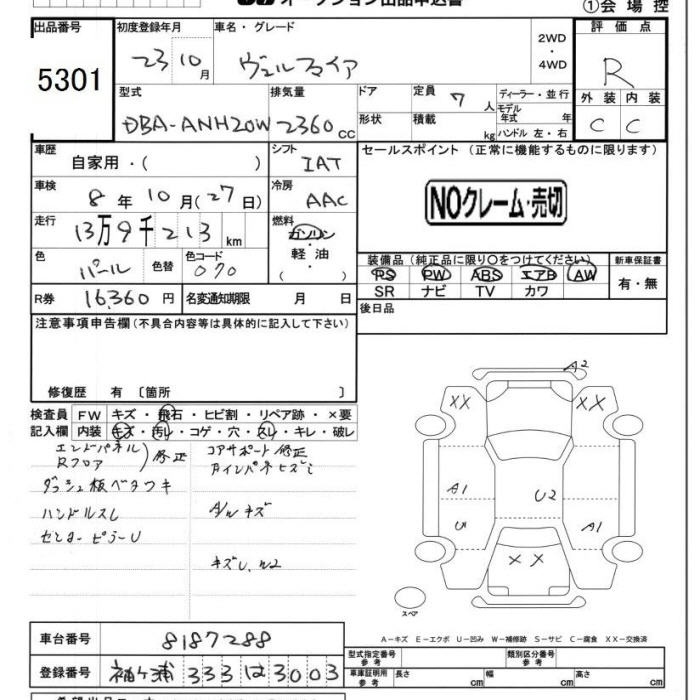 オークション出品申込書 ①会場控
出品番号 5301
初度登録年月 23 10月
車名・グレード ヴェルファイア
2WD・4WD
評価点 R
外装 C 内装 C
型式 DBA-ANH20W
排気量 2360cc
ドア 形状
定員 7人 積載 kg
ディーラー・並行
モデル年式 年
ハンドル 左・右
車歴 自家用・( )
シフト IAT
車検 8年10月(27日)
冷房 AAC
走行 13万9千213km
燃料 ガソリン・軽油・( )
色 パール 色替 色コード 070
R券 16,360円 名変通知期限 月 日
セールスポイント(正常に機能するものに限ります)
NOクレーム・売切
装備品(純正品に限り○をつけてください)
PS PW ABS エアB AW
SR ナビ TV カワ
新車保証書 有・無
後日品
注意事項申告欄(不具合内容等は具体的に記入して下さい)
修復歴 有〔箇所 〕
検査員記入欄
FW キズ・飛石・ヒビ割・リペア跡・×要
内装 キズ・汚レ・コゲ・穴・スレ・キレ・破レ
エンドパネル
Rフロア )修正
コアサポート修正
ダッシュ板ベタツキ
ハンドルスレ
A/Wキズ
センターピラーU
キズU、W2
A2
XX XX
A1 U2
U1 A1
XX
スペア
A-キズ E-エクボ U-凹み W-補修跡 S-サビ C-腐食 XX-交換済
車台番号 8187288
登録番号 袖ヶ浦 333 は 3003
型式指定番号 参考 類別区分番号 参考
車庫証明用 参考 長さ cm 幅 cm 高さ cm